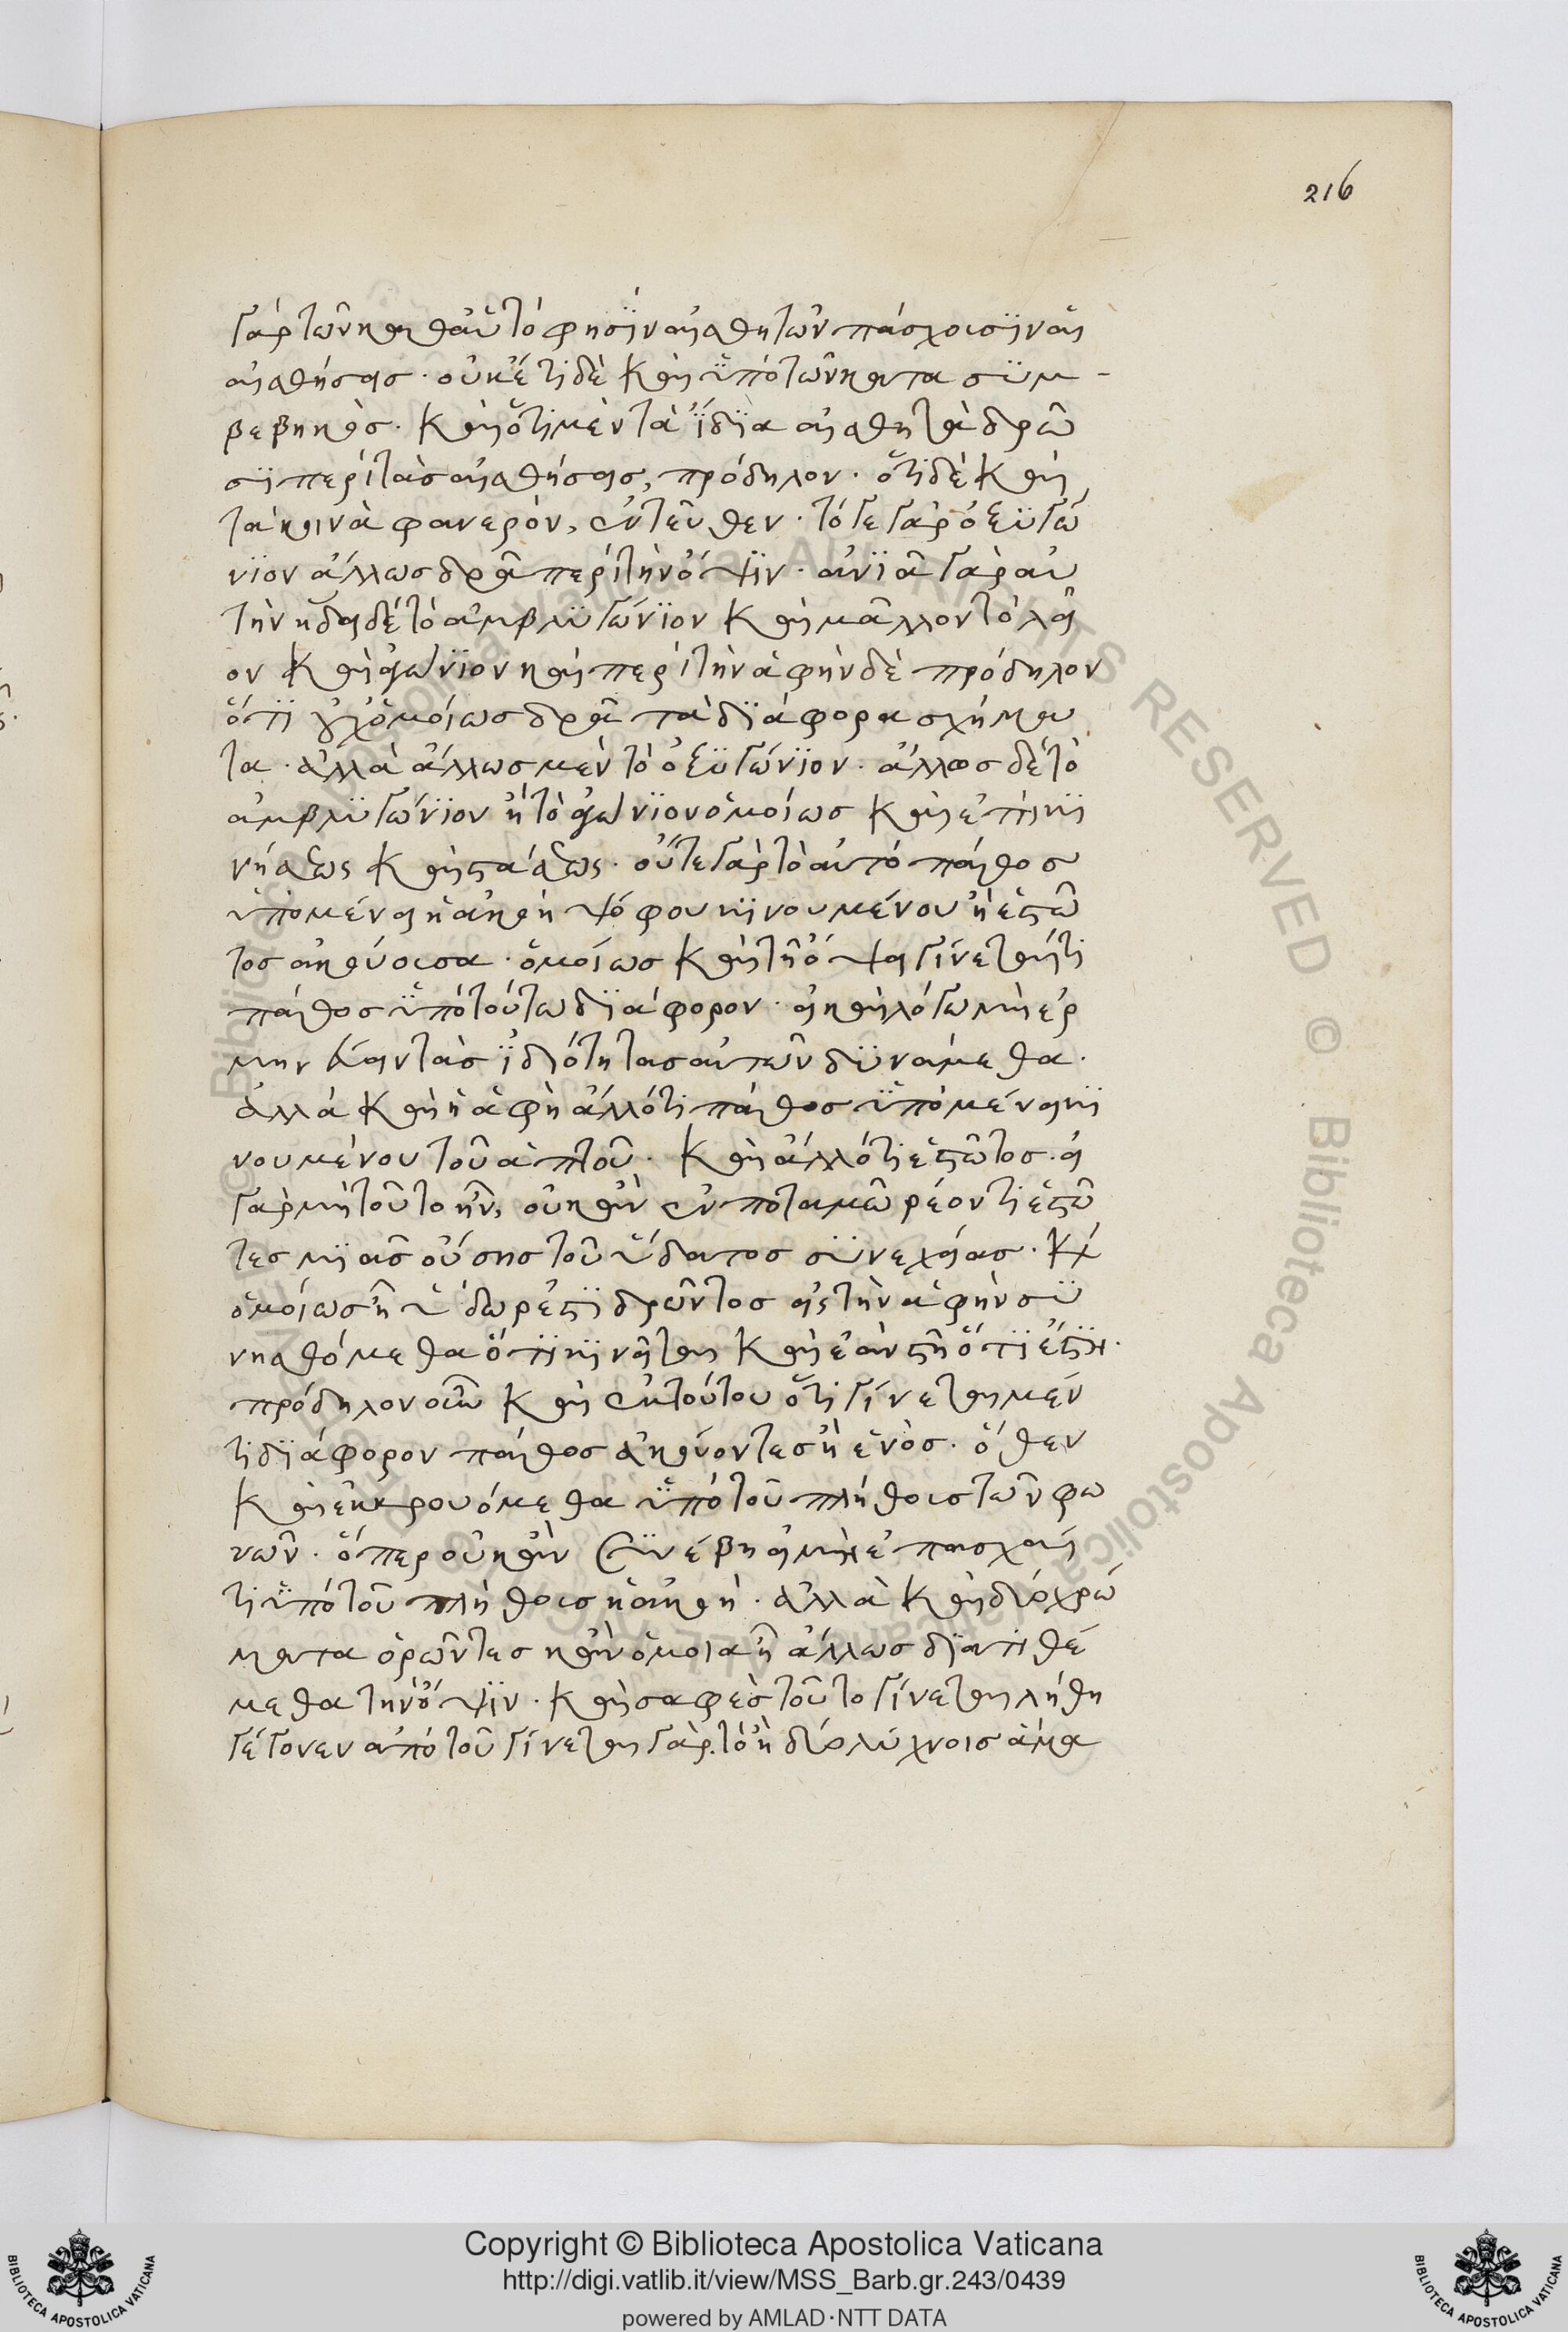 216
γὰρ τῶν καθ' αὑτό φησϊν αἰσθητῶν πάσχουσϊν αἱ
αἰσθήσεις · οὐκέτι δὲ καὶ ὑπὸ τῶν κατα συμ-
βεβηκὸς · καὶ ὅτι μὲν τὰ ἴδϊα αἰσθητὰ δρῶ
σϊ περὶ τὰς αἰσθήσεις, πρόδηλον · ὅτι δὲ καὶ
τὰ κοινὰ φανερὸν, ἐντεῦθεν · τό γε γὰρ ὀξϋγώ
νϊον ἄλλως δρᾶ περὶ τὴν ὄψϊν · ἀνϊᾶ γὰρ αὐ
τὴν ἥδει δὲ τὸ ἀμβλϋγώνϊον καὶ μᾶλλον τὸ λεῖ
ον καὶ ἀγώνϊον καὶ περὶ τὴν ἁφὴν δὲ πρόδηλον
ὅτϊ οὐχ ὁμοίως δρᾶ τὰ δϊάφορα σχήμα
τα · ἀλλὰ ἄλλως μὲν τὸ ὀξϋγώνϊον · ἄλλως δὲ τὸ
ἀμβλϋγώνϊον ἢ τὸ ἀγώνϊον ὁμοίως καὶ ἐπὶ κϊ
νήσεως καὶ στάσεως · οὔτε γὰρ τὸ αὐτὸ πάθος
ὑπομένει ἡ ἀκοὴ ψόφου κϊνουμένου ἢ ἑστῶ
τος ἀκούουσα · ὁμοίως καὶ τῇ ὄψει γίνεταί τι
πάθος ὑπὸ τούτω δϊάφορον · εἰ καὶ λόγω μὴ ἑρ
μην τὰς ἰδιότητας αὐτῶν δϋνάμεθα ·
ἀλλὰ καὶ ἡ ἁφὴ ἄλλό τι πάθος ὑπομένει κϊ
νουμένου τοῦ ἁπτοῦ · καὶ ἄλλό τι ἑστῶτος · εἰ
γὰρ μὴ τοῦτο ἦν, οὐκ ἂν ἐν ποταμῶ ρέοντι ἑστῶ
τες μϊᾶς οὔσης τοῦ ὕδατος σϋνεχείας · καὶ
ὁμοίως ἢ ὕδωρ ἐστϊ δρῶντος εἰς τὴν ἁφὴν σϋ
νησθόμεθα ὅτϊ κϊνεῖται καὶ ἐὰν στῇ ὅτϊ ἔστϊν ·
πρόδηλον οὖν καὶ ἐκ τούτου ὅτι γίνεται μέν
τι δϊάφορον πάθος ἀκούοντες ἢ ἑνὸς · ὅθεν
καὶ ἐκκρουόμεθα ὑπὸ τοῦ πλήθους τῶν φω
νῶν · ὅπερ οὐκ ἂν σϋνέβη εἰ μὴ ἐπασχεν
τι ὑπὸ τοῦ πλήθους ἡ ἀκοὴ · ἀλλὰ καὶ δύο χρώ
ματα ὁρῶντες κἂν ὅμοια ἢ ἄλλως δϊατιθέ
μεθα τὴν ὄψϊν · καὶ σαφὲς τοῦτο γίνεται λήθη
γέγονεν ἀπὸ τοῦ γίνεται γὰρ τὸ ἢ δύο λύχνοις ἅμα
Copyright © Biblioteca Apostolica Vaticana
http://digi.vatlib.it/view/MSS_Barb.gr.243/0439
powered by AMLAD·NTT DATA